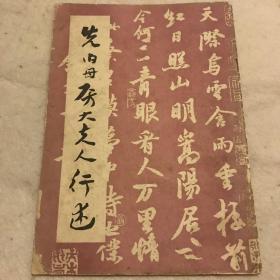 天際烏雲含雨重樓前
紅日照山明嵩陽居士
今何在青眼看人萬里情
先伯母房太夫人行述